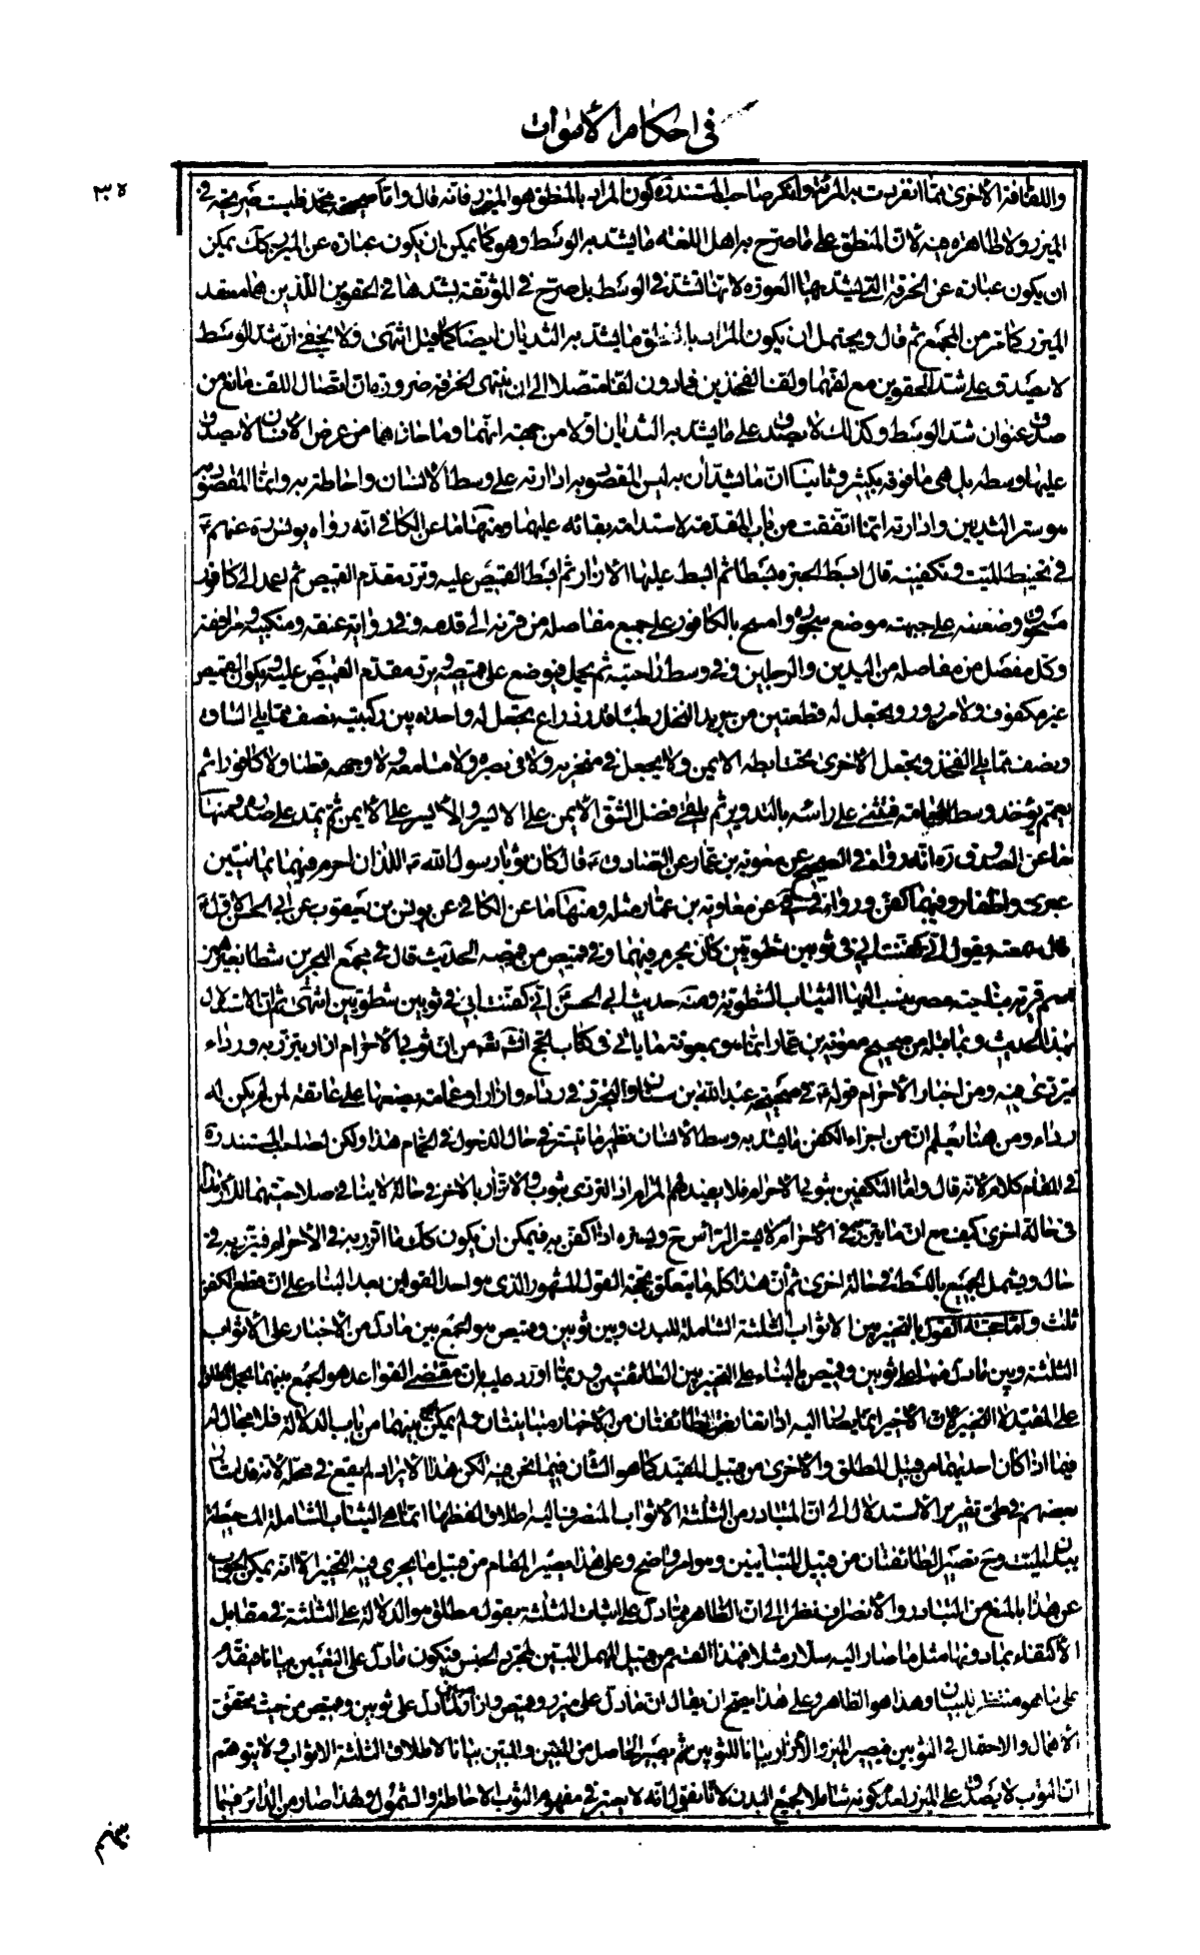 في احكام الأموات
٣٥
واللفافة الأخرى مما انفردت به المرئة وانكر صاحب المستند ره كون المراد بالمنطق هو الميزر فانه قال واما صحيحة محمد فليست صريحة في
الميزر ولا ظاهرة فيه لان المنطق على ما صرح به اهل اللغة ما يشد به الوسط وهو كما يمكن ان يكون عبارة عن الميزر كك يمكن
ان يكون عبارة عن الخرقة التي يشد بها العورة لانها تشد في الوسط بل صرح في الموثقة بشدها في الحقوين اللذين هما معقد
الميزر كما مر من المجمع ثم قال ويحتمل ان يكون المراد بالمنطق ما يشد به الثديان ايضا كما قيل انتهى ولا يخفى ان شد الوسط
لا يصدق على شد الحقوين مع لفهما ولف الفخذين فما دون لفا متصلا الى ان ينتهى الخرقة ضرورة ان اتصال اللف مانع من
صدق عنوان شد الوسط وكذلك لا يصدق على ما يشد به الثديان اولا من جهة انهما وما حاذاهما من عرض الانسان لا يصدق
عليها وسطه بل هي ما فوقه بكثير وثانيا ان ما يشدان به ليس المقصود به ادارته على وسط الانسان واحاطته به وانما المقصود
هو ستر الثديين وادارته انما اتفقت من باب المقدمة لاستدامة بقائه عليهما ومنها ما عن الكافي انه رواه يونس ره عنهم ع
في تحنيط الميت وتكفينه قال ابسط الحبرة بسطا ثم ابسط عليها الازار ثم ابسط القميص عليه وترد مقدم القميص ثم اعمد الى كافور
مسحوق وضعه على جبهته موضع سجوده وامسح بالكافور على جميع مفاصله من قرنه الى قدمه وفي رواية عنقه ومنكبيه ومرافقه
وكل مفصل من مفاصله من اليدين والرجلين وفي وسط راحتيه ثم يحمل فيوضع على قميصه ويرد مقدم القميص عليه ويكون القميص
غير مكفوف ولا مزرور ويجعل له قطعتين من جريد النخل رطبا قدر ذراع يجعل له واحدة بين ركبتيه نصف مما يلي الساق
ونصف مما يلي الفخذ ويجعل الأخرى تحت ابطه الايمن ولا يجعل في منخريه ولا في بصره ولا مسامعه ولا وجهه قطنا ولا كافورا ثم
يعمم يؤخذ وسط العمامة فيثنى على راسه بالتدوير ثم يلقى فضل الشق الأيمن على الأيسر والأيسر على الأيمن ثم تمد على صدره ومنها
ما عن الصدوق ره انه رواه في الصحيح عن معوية بن عمار عن الصادق ع قال كان ثوبا رسول الله ص اللذان احرم فيهما يمانيين
عبري واظفار وفيهما كفن ورواه في عن معاوية بن عمار مثله ومنها ما عن الكافي عن يونس بن يعقوب عن ابي الحسن الاول ع
قال سمعته يقول اني كفنت ابي في ثوبين شطويين كان يحرم فيهما وفي قميص من قمصه الحديث قال في مجمع البحرين شطا بغير همز
اسم قرية بناحية مصر ينسب اليها الثياب الشطوية ومنه حديث ابي الحسن اني كفنت ابي في ثوبين شطويين انتهى ثم ان الاستدلال
بهذا الحديث وبما قبله من صحيح معوية بن عمار انما هو بمعونة ما ياتي في كتاب الحج انشه من ان ثوبي الأحرام ازار يتزر به ورداء
يتردى فيه ومن اخبار الأحرام قوله ع في صحيحة عبد الله بن سنان والتجرد في رداء وازار او عمامة يضعها على عاتقه لمن لم يكن له
رداء ومن هنا يعلم ان من اجزاء الكفن ما يشد به وسط الانسان نظير ما يتستر في حال الدخول في الحمام هذا ولكن لصاحب المستند ره
في المقام كلاما لانه قال واما التكفين بثوبي الأحرام فلا يفيد هم المرام اذ التردي بثوب والاتزار بالاخر في حالة لا ينافي صلاحيتهما للأزار
في حالة اخرى كيف مع ان ما يتردى في الأحرام لا يستر الراس ح ويستره اذا كفن به فيمكن ان يكون كك ما اتزر به في الأحرام فيتزر به في
حال ويشمل الجميع بالبسط في حالة اخرى ثم ان هذا كله ما يتعلق بحجة القول المشهور الذي هو احد القولين بعد البناء على ان قطع الكفن
ثلث واما حجة القول بالتخيير بين الاثواب الثلثة الشاملة للبدن وبين ثوبين وقميص هو الجمع بين ما دل من الأخبار على الأثواب
الثلثة وبين ما دل منها على ثوبين وقميص بالبناء على التخيير بين الطائفتين وربما اورد عليه بان مقتضى القواعد هو الجمع بينهما بحمل المطلق
على المقيد لا التخيير لان الأخير انما يصار اليه اذا تعارض طائفتان من الأخبار متباينتان ولم يمكن الجمع بينهما من باب الدلالة فلا مجال له
فيما اذا كان احديهما من قبيل المطلق والأخرى من قبيل المقيد كما هو الشأن فيما نحن فيه لكن هذا الايراد لم يقع في محله لانه قد اشار
بعضهم في طي تقرير الاستدلال الى ان المتبادر من الثلثة الأثواب المنصرف اليه اطلاق لفظها انما هي الثياب الشاملة المحيطة
ببدن الميت وح تصير الطائفتان من قبيل المتباينين وهو امر واضح وعلى هذا يصير المقام من قبيل ما يجري فيه التخيير الا انه يمكن الجواب
عن هذا بالمنع من التبادر والانصراف نظرا الى ان الظاهر مما دل على اثبات الثلثة بقول مطلق هو الدلالة على الثلثة في مقابل
الأكتفاء بما دونها مثل ما صار اليه سلار مثلا فهذا القسم من قبيل المهمل المبين لمجرد الجنس فيكون ما دل على التعيين بيانا مقدما
على ما هو منتظر للبيان وهذا هو الظاهر وعلى هذا يصح ان يقال ان ما دل على ميزر وقميص وازار مما دل على ثوبين وقميص من حيث يحقق
الأهمال والاحتمال في الثوبين فيصير الميزر والأزار بيانا للثوبين ثم يصير الحاصل من المبين والمبين بيانا لاطلاق الثلثة الاثواب ولا يتوهم
ان الثوب لا يصدق على الميزر لعدم كونه شاملا لجميع البدن لانا نقول انه لا يعتبر في مفهوم الثوب الاحاطة والشمول ولهذا صار من الدائر فيما
بينهم